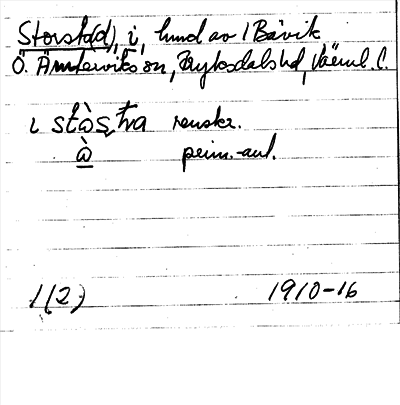 Storsta(d), i, hund av 1 Bävik,
Ö. Ämterviks sn, Fryksdals hd, Värml. l.
ı stàs̨tra renskr.
à prim.-aul.
1(2) 1910-16